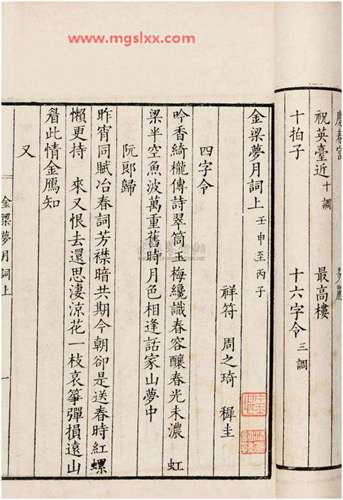 www.mgslxx.com
祝英臺近十調 最高樓
十拍子 十六字令三調
金梁夢月詞上 壬申至丙子
祥符 周之琦 穉圭
四字令
吟香綺櫳傳詩翠筒玉梅纔識春容釀春光未濃 虹
梁半空魚波萬重舊時月色相逢話家山夢中
阮郎歸
昨宵同賦冶春詞芳襟暗共期今朝卻是送春時紅螺
懶更持 來又恨去還思淒涼花一枝哀箏彈損遠山
睂此情金鴈知
又
金梁夢月詞上 一